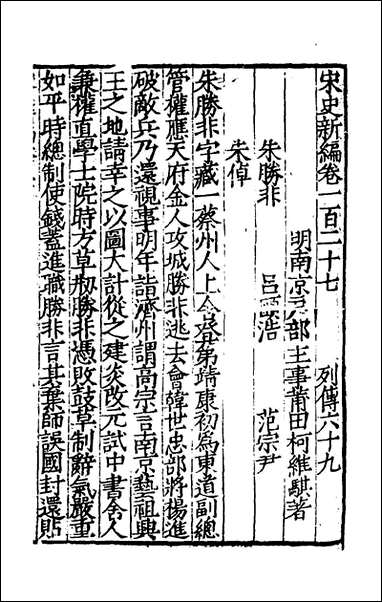 宋史新編卷一百二十七 列傳六十九
明南京戶部主事莆田柯維騏著
朱勝非 呂頤浩 范宗尹
朱倬
朱勝非字藏一蔡州人上舍登第靖康初為東道副總
管權應天府金人攻城勝非逃去會韓世忠部將楊進
破敵兵乃還視事明年詣濟州謂高宗言南京藝祖興
王之地請幸之以圖大計從之建炎改元試中書舍人
兼權直學士院時方草創勝非憑敗鼓草制辭氣嚴重
如平時總制使錢蓋進職勝非言其棄師誤國封還貼